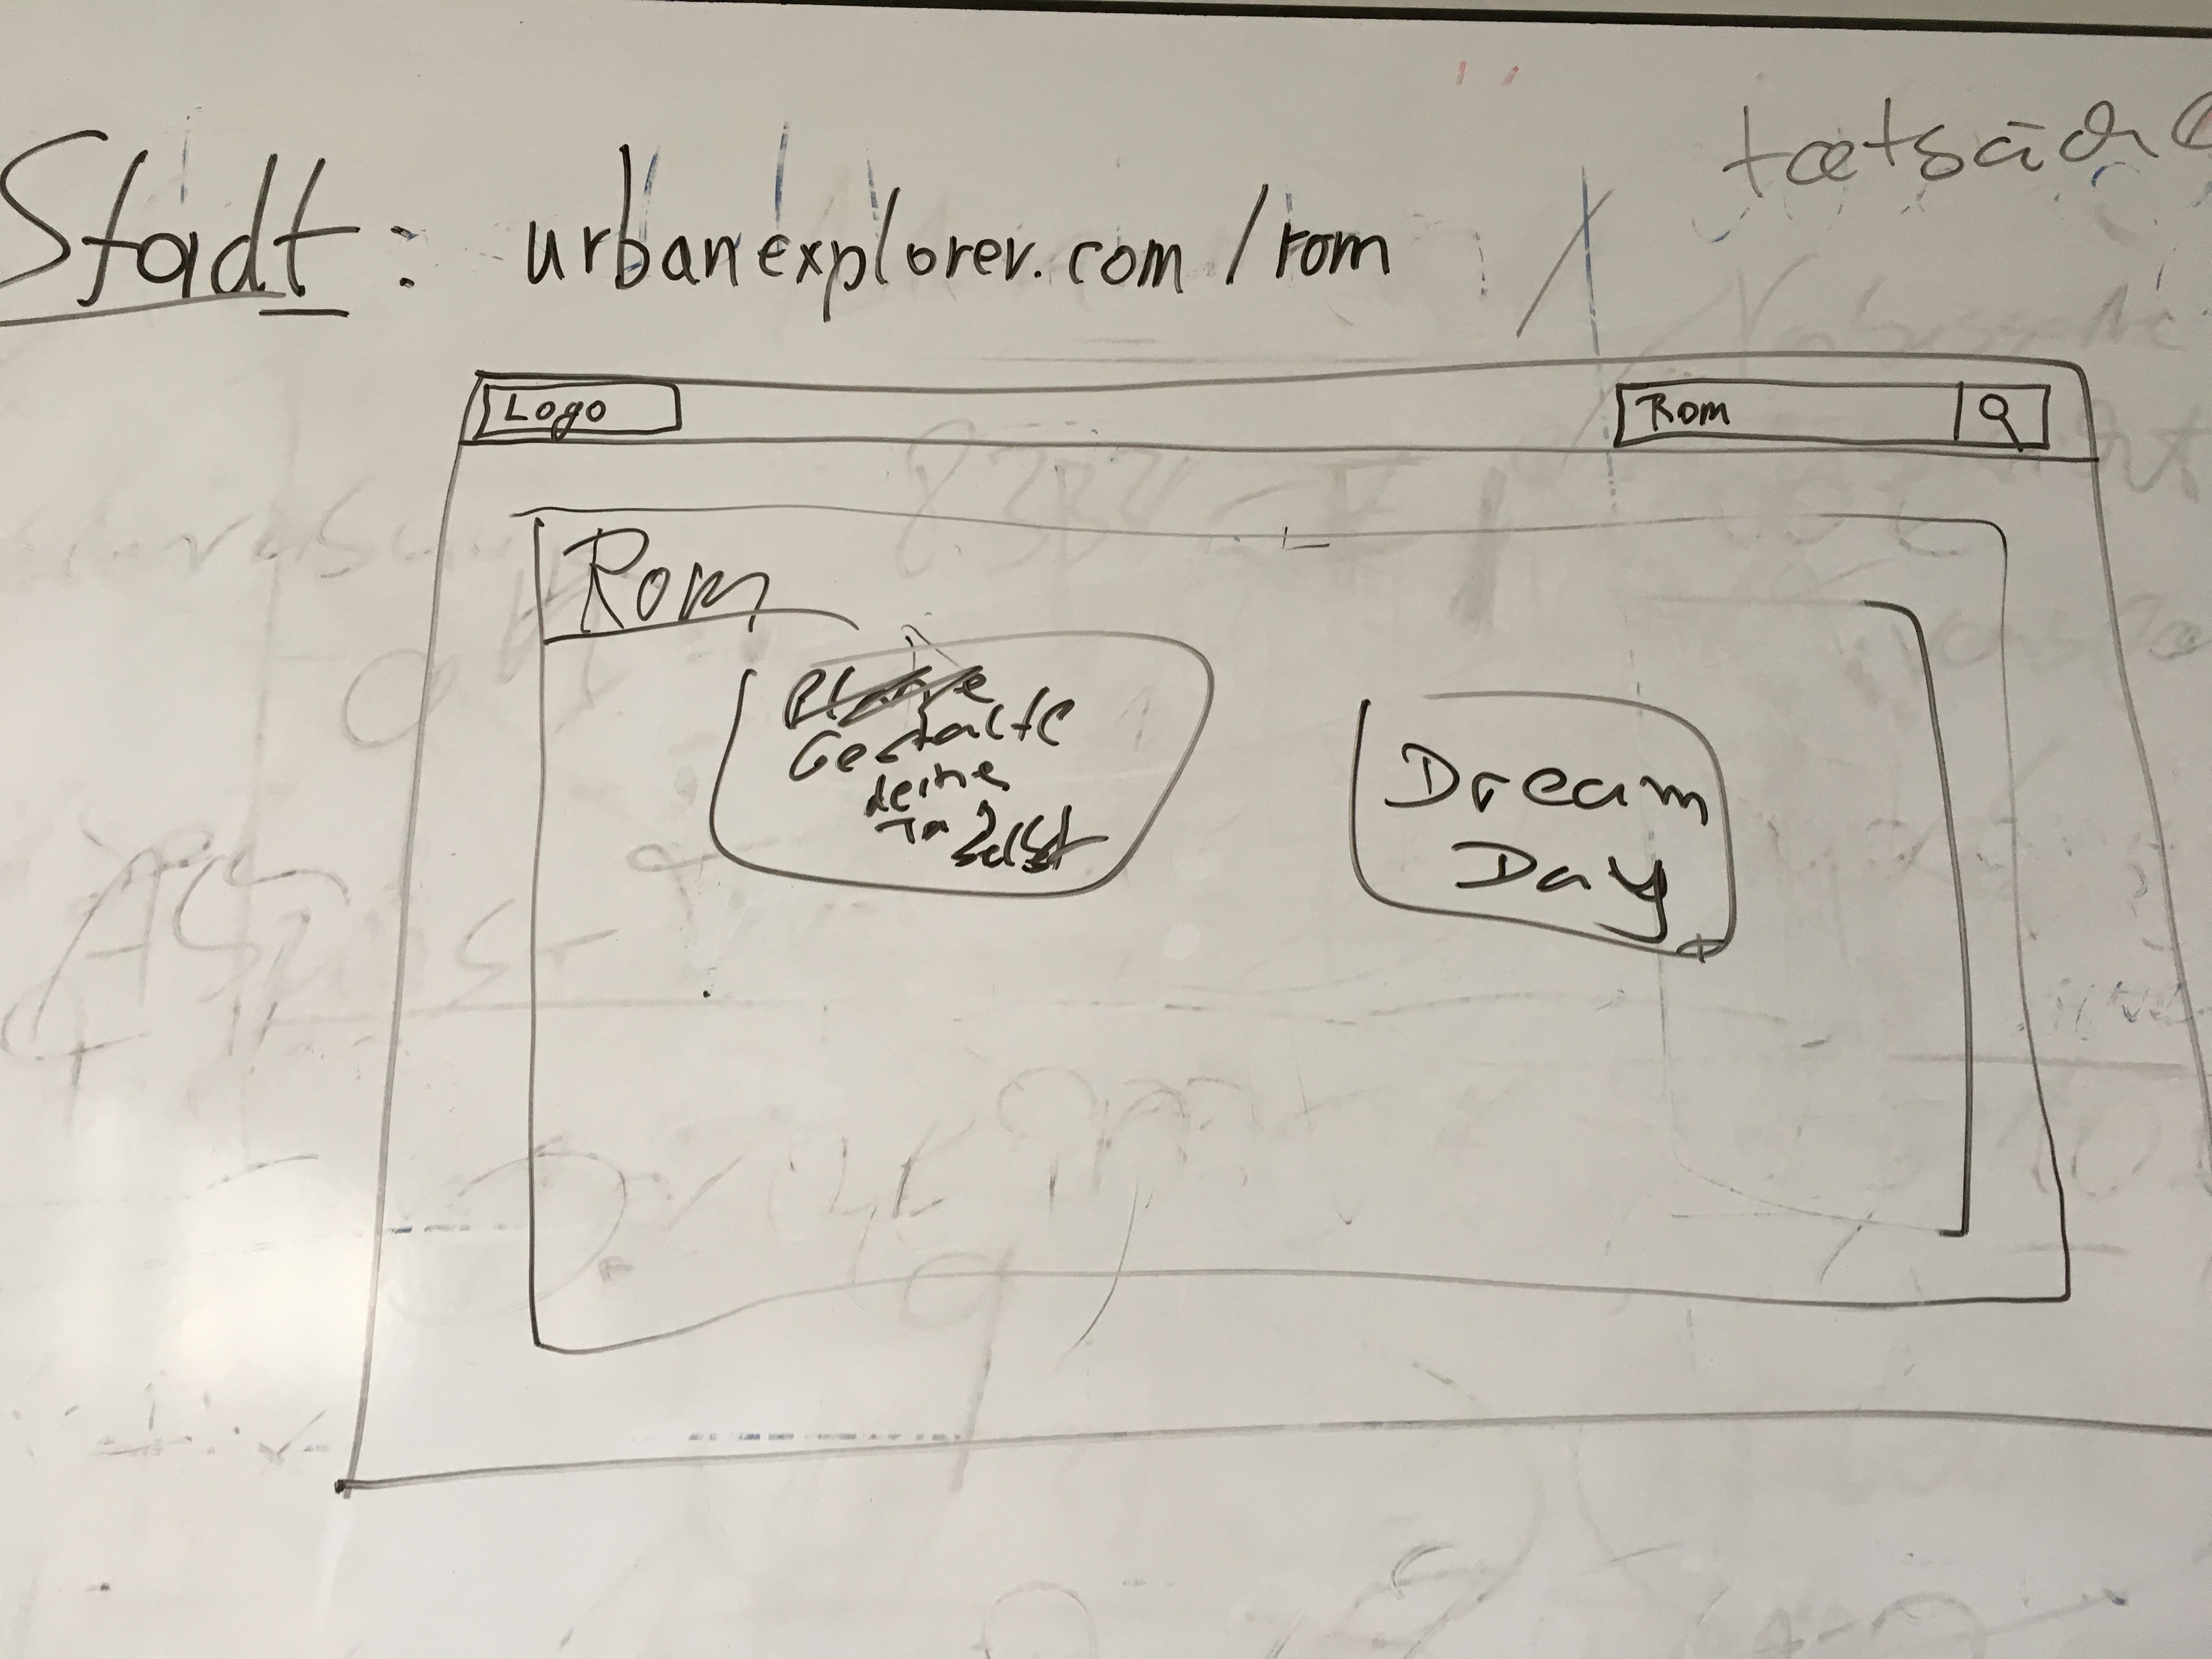 Stadt: urbanexplorer.com/rom
Logo
Rom
Rom
Gestalte
deine
selbst
Dream
Day